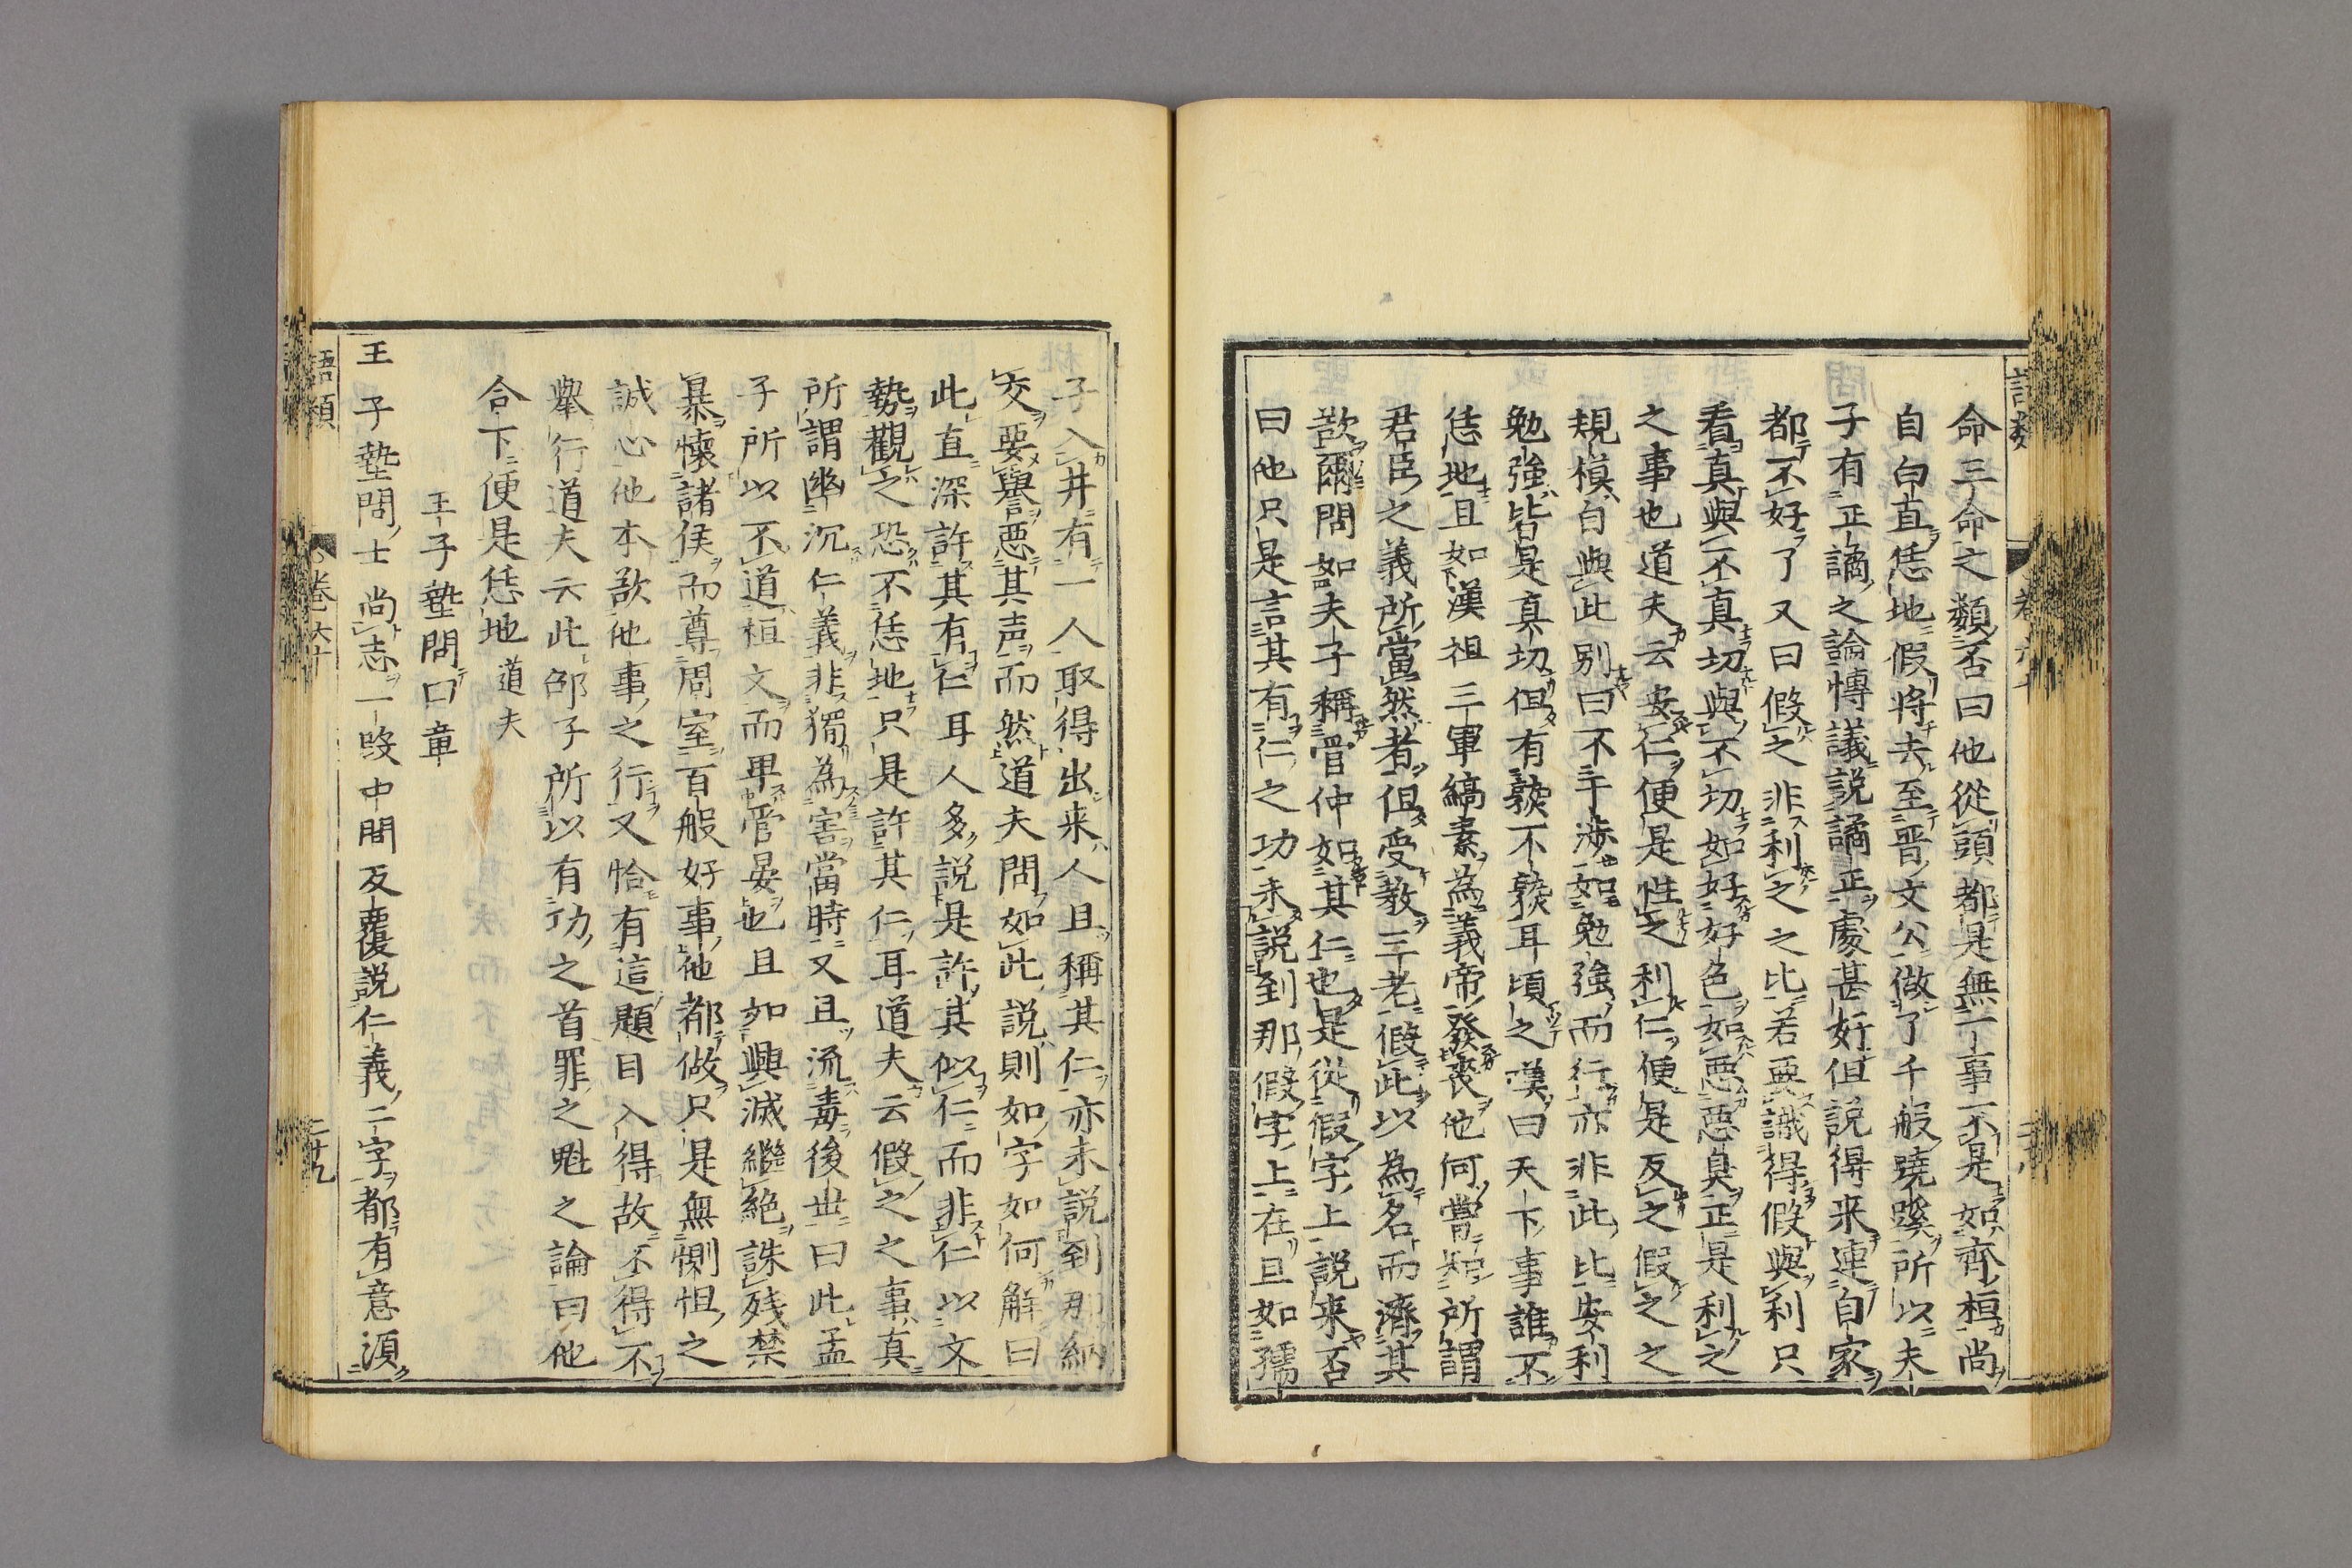 命三命之類否曰他從頭都是無一事不是如齊桓尚
自白直恁地假將去至晋文公做了千般蹺蹊所以夫
子有正譎之論博議説譎正處甚好但説得来連自家
都不好了又曰假之非利之之比若要識得假與利只
看真與不真切與不切如好好色如惡惡臭正是利之
之事也道夫云安仁便是性之利仁便是反之假之之
規模自與此別曰不干渉如勉強而行亦非此比安利
勉強皆是真切但有熟不熟耳頃之嘆曰天下事誰不
恁地且如漢祖三軍縞素為義帝發喪他何嘗知所謂
君臣之義所當然者但受教三老假此以為名而濟其
欲爾問如夫子稱管仲如其仁也是從假字上説来否
曰他只是言其有仁之功未説到那假字上在且如孺
子入井有一人取得出来人且稱其仁亦未説到那納
交要譽惡其声而然道夫問如此説則如字如何解曰
此直深許其有仁耳人多説是許其似仁而非仁以文
勢觀之恐不恁地只是許其仁耳道夫云假之之事真
所謂幽沉仁義非獨為害當時又且流毒後世曰此孟
子所以不道桓文而畢管晏也且如興滅繼絶誅残禁
暴懐諸侯而尊周室百般好事他都做只是無惻怛之
誠心他本欲他事之行又恰有這題目入得故不得不
舉行道夫云此邵子所以有功之首罪之魁之論曰他
合下便是恁地 道夫
王子墊問曰章
王子墊問士尚志一段中間反覆説仁義二字都有意須
語類 卷六十 二十九